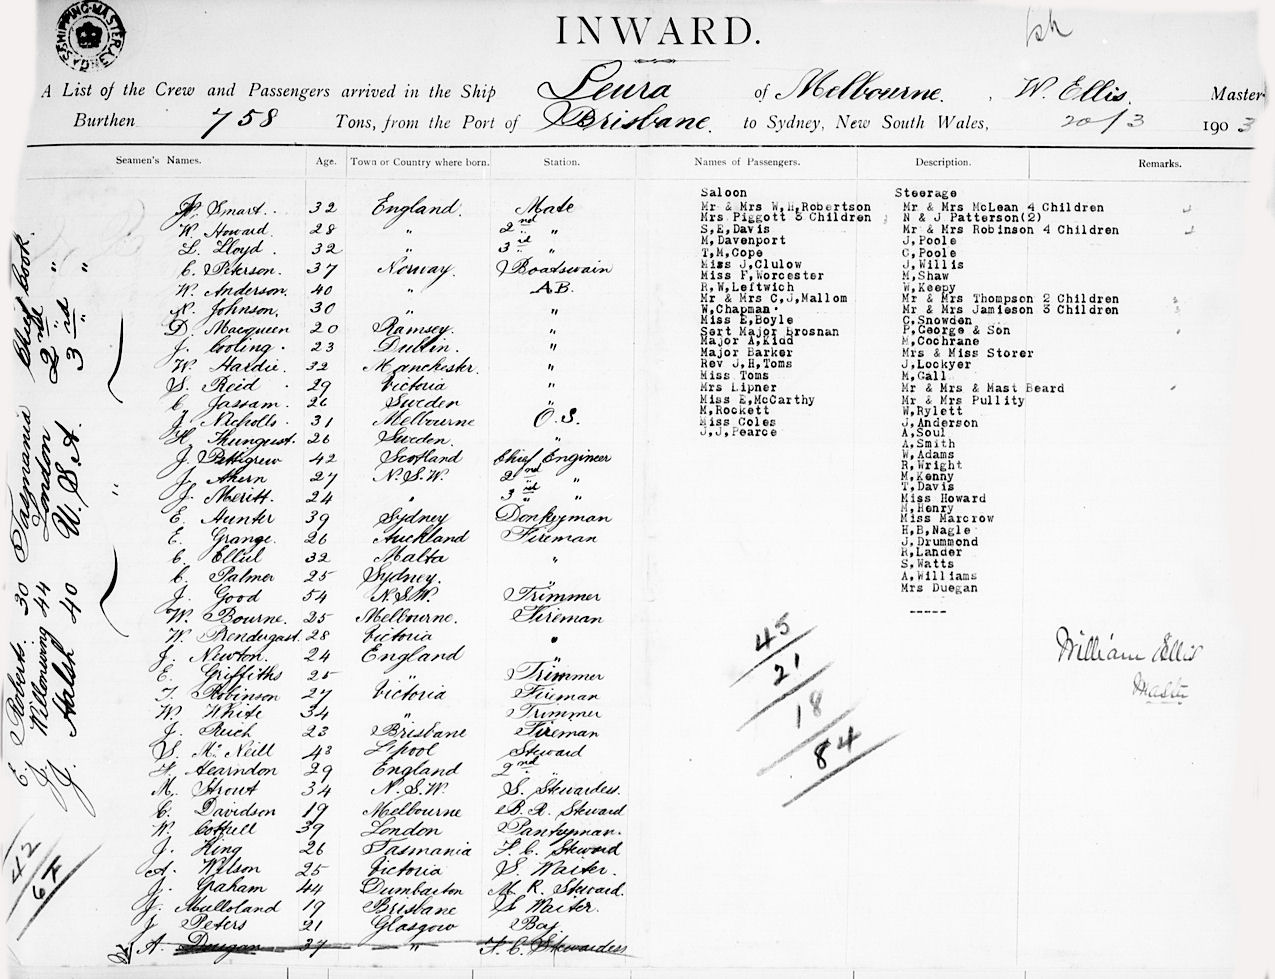 SHIPPING MASTER SYDNEY
INWARD.
A List of the Crew and Passengers arrived in the Ship Leura of Melbourne, W. Ellis. Master
Burthen 758 Tons, from the Port of Brisbane to Sydney, New South Wales, 20/3 1903
Seamen's Names. Age. Town or Country where born. Station. Names of Passengers. Description. Remarks.
Smart. 32 England. Mate
W. Howard. 28 " 2nd "
L. Lloyd. 32 " 3rd "
C. Peterson. 37 Norway. Boatswain
W. Anderson. 40 " A.B.
N. Johnson. 30 " "
D. Macqueen 20 Ramsey. "
J. Cooling. 23 Dublin. "
W. Hardie. 32 Manchester. "
S. Reid 29 Victoria "
C. Jassam. 26 Sweden "
J. Nicholls. 31 Melbourne O.S.
H. Thunquest. 26 Sweden. "
J. Pettigrew 42 Scotland Chief Engineer
J. Ahern 27 N.S.W. 2nd "
J. Meritt. 24 " 3rd "
E. Hunter 39 Sydney Donkeyman
E. Grange. 26 Auckland Fireman
C. Ellul 32 Malta "
C. Palmer 25 Sydney. "
J. Good 54 N.S.W. Trimmer
W. Bourne. 25 Melbourne. Fireman
W. Prendergast. 28 Victoria "
J. Newton. 24 England "
E. Griffiths 25 Trimmer
T. Robinson 27 Victoria Fireman
W. White 34 " Trimmer
J. Reich 23 Brisbane Fireman
S. McNeill 43 L'pool Steward
F. Hearndon 29 England 2nd "
M. Strout 34 N.S.W. S. Stewardess.
C. Davidson 19 Melbourne B.R. Steward
W. Cottell 39 London Pantryman.
J. King 26 Tasmania F.C. Steward
A. Wilson 25 Victoria S. Waiter.
J. Graham 44 Dumbarton M.R. Steward.
J. Mulloland 19 Brisbane S Waiter.
J Peters 21 Glasgow Boy
A. Deugan 37 " F.C. Stewardess
E. Roberts. 30 Tasmania Chief Cook.
J. 44 London 2nd "
J. Walsh 40 U.S.A. 3rd "
42
67
Saloon
Mr & Mrs W,H,Robertson
Mrs Piggott 5 Children
S,E,Davis
M,Davenport
T,M,Cope
Miss J,Clulow
Miss F,Worcester
R,W,Leftwich
Mr & Mrs C,J,Mallom
W,Chapman
Miss E,Boyle
Sert Major Brosnan
Major A,Kidd
Major Barker
Rev J,H,Toms
Miss Toms
Mrs Lipner
Miss E,McCarthy
M,Rockett
Miss Coles
J,J,Pearce
Steerage
Mr & Mrs McLean 4 Children
N & J Patterson(2)
Mr & Mrs Robinson 4 Children
J,Poole
C,Poole
J,Willis
M,Shaw
W,Keepy
Mr & Mrs Thompson 2 Children
Mr & Mrs Jamieson 3 Children
C,Snowden
P,George & Son
M,Cochrane
Mrs & Miss Storer
J,Lockyer
M,Gall
Mr & Mrs & Mast Beard
Mr & Mrs Pullity
W,Rylett
J,Anderson
A,Soul
A,Smith
W,Adams
R,Wright
M,Kenny
T,Davis
Miss Howard
M,Henry
Miss Marcrow
H,B,Nagle
J,Drummond
R,Lander
S,Watts
A,Williams
Mrs Duegan
-----
45
21
18
84
William Ellis
Master